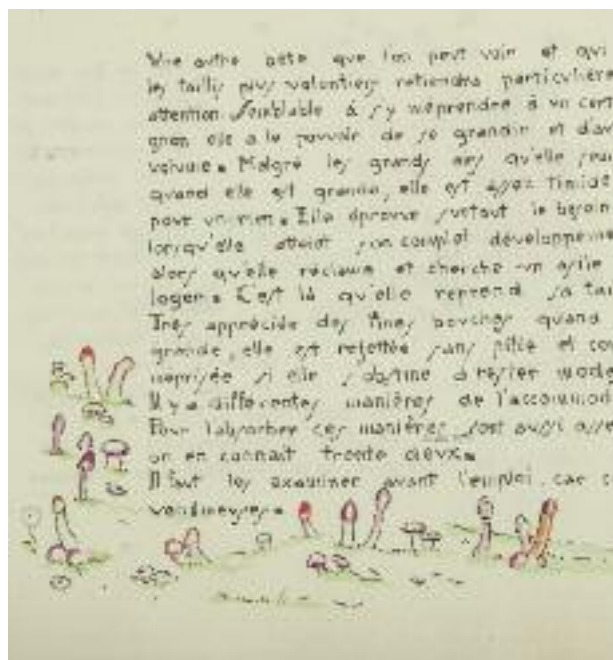 Une autre bête que l'on peut voir et qui
les taillis plus volontiers retiendra particulière
attention Semblable à s'y méprendre à un cert
gnon elle a le pouvoir de se grandir et d'av
volume. Malgré les grands airs qu'elle
quand elle est grande, elle est assez timide
pour un rien. Elle éprouve surtout le besoin
lorsqu'elle atteint son complet développeme
alors qu'elle réclame et cherche un asile
loger. C'est là qu'elle reprend sa tai
Très appréciée des fines bouches quand
grande, elle est rejettée sans pitié et
méprisée si elle s'obstine à rester mode
Il y a différentes manières de l'accommod
Pour l'absorber ces manières sont aussi asse
on en connait trente deux.
Il faut les examiner avant l'emploi. car
vénéneuses.